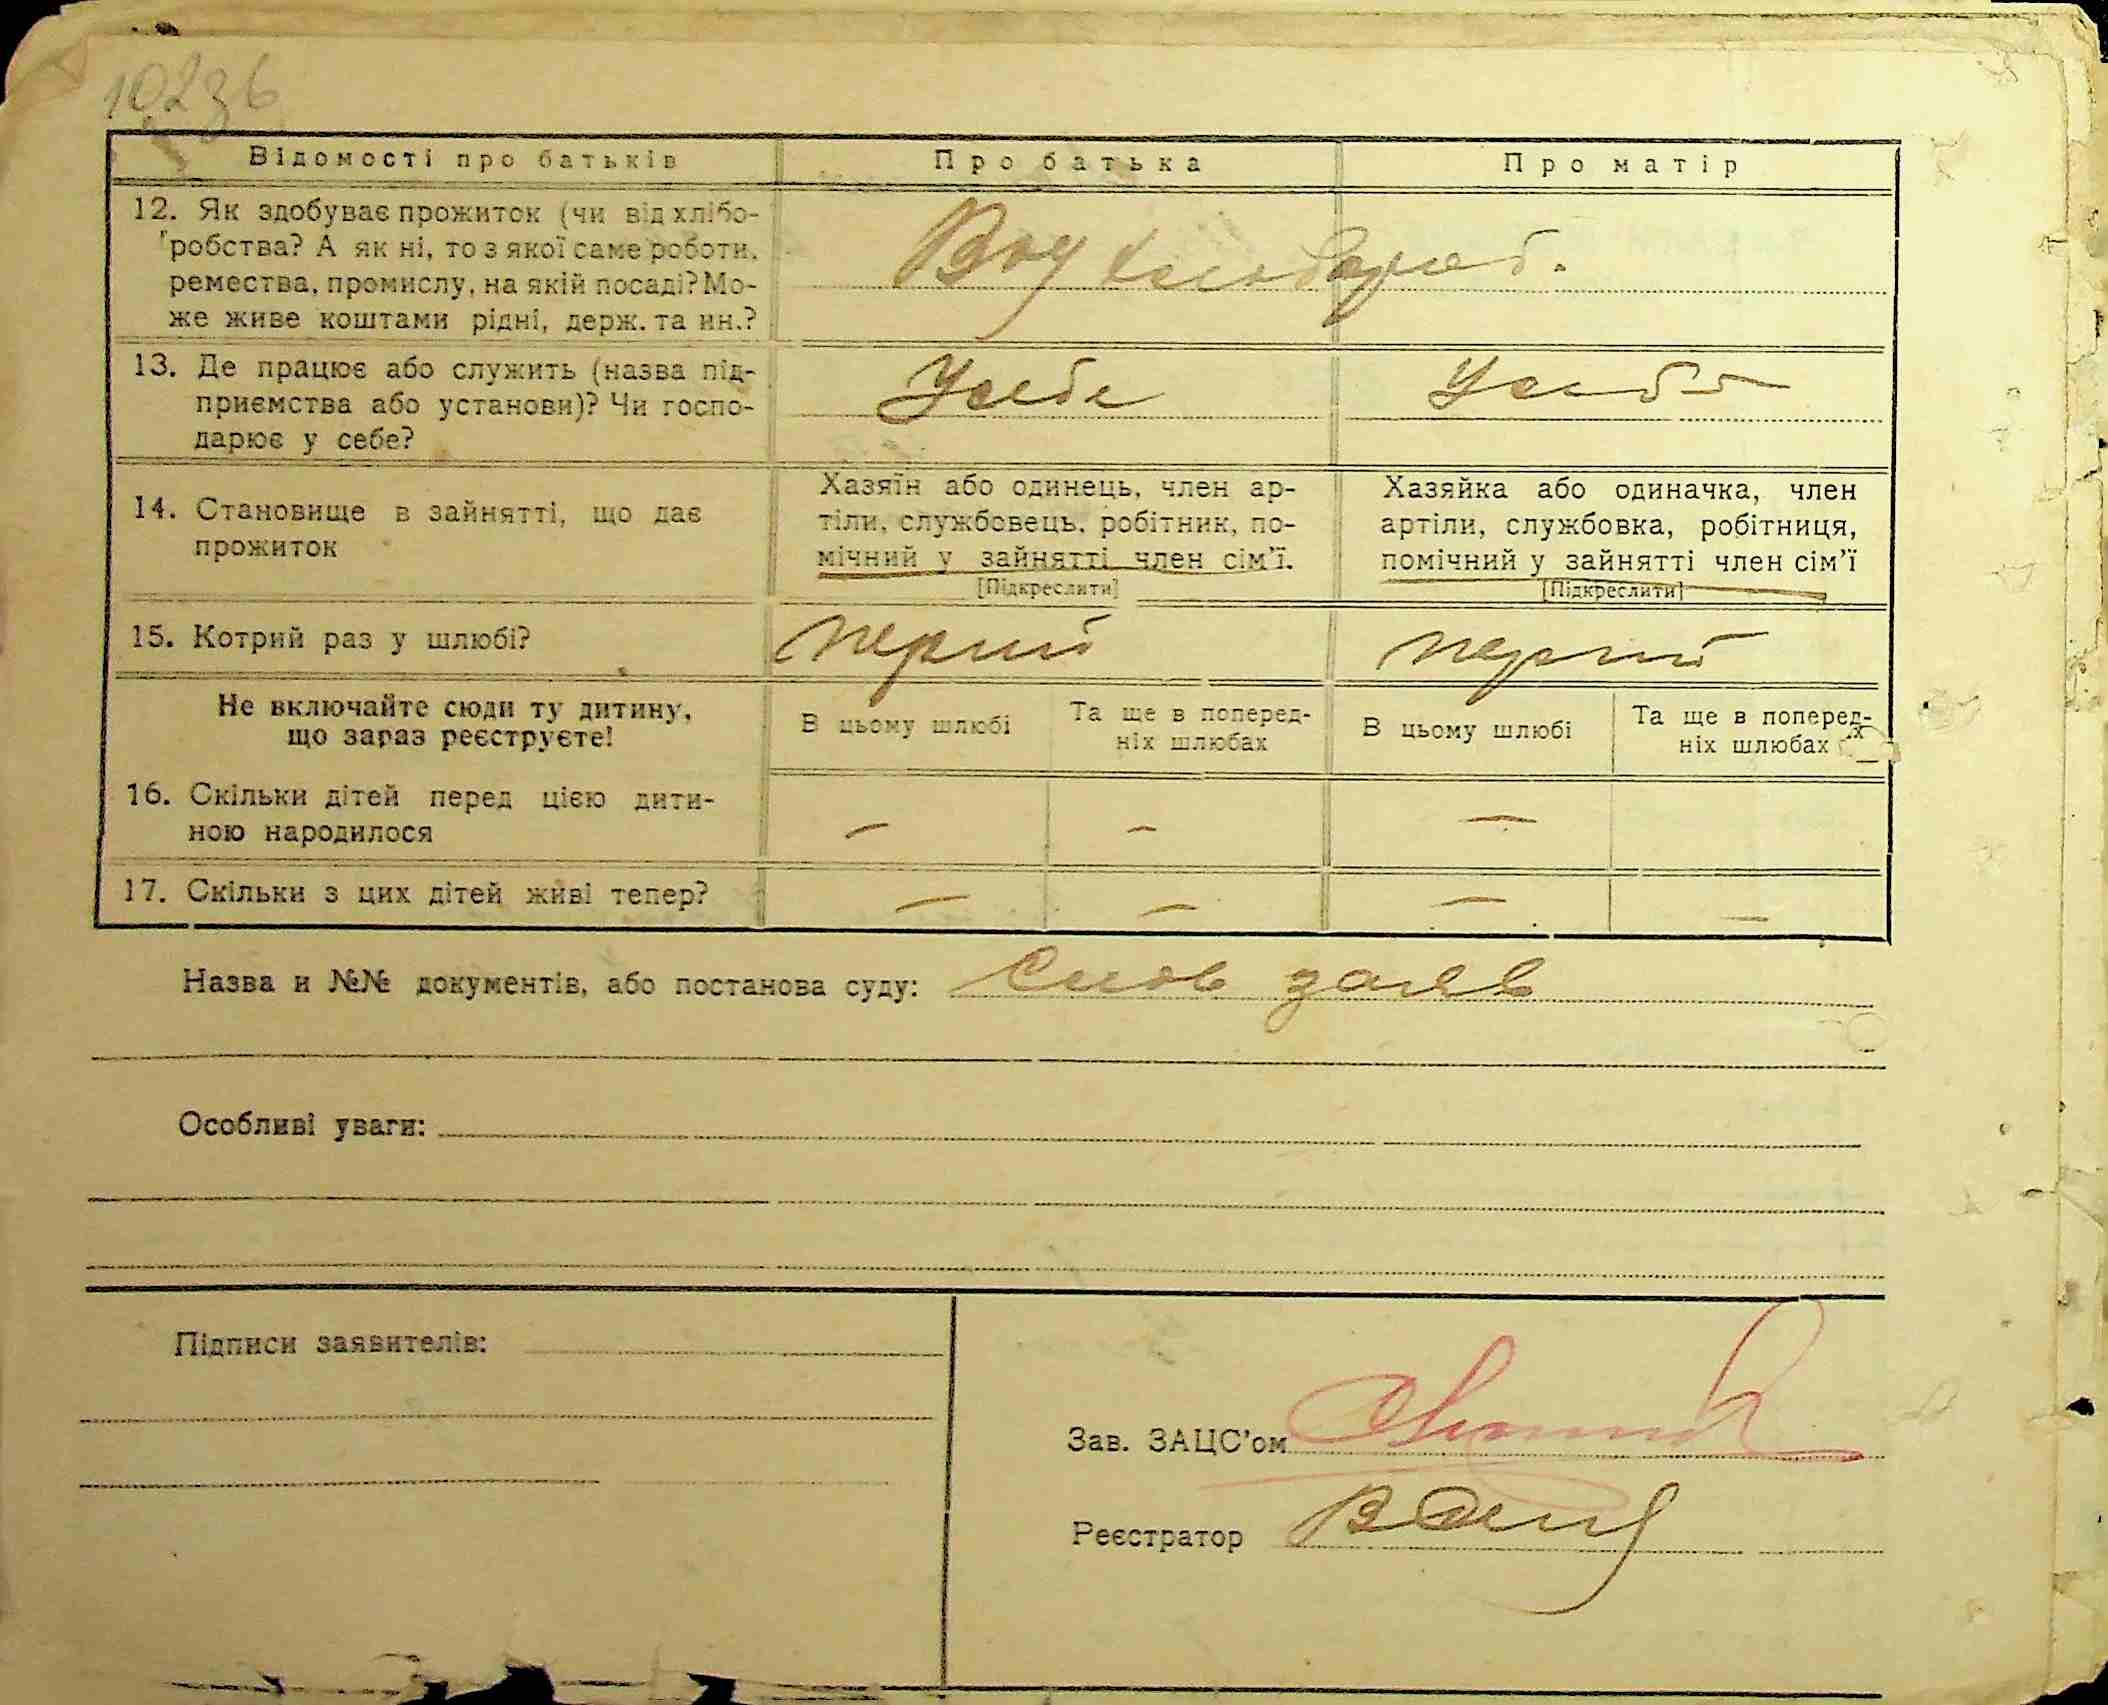 102зв
Відомості про батьків
Про батька
Про матір
12. Як здобуває прожиток (чи від хлібо-
робства? А як ні, то з якої саме роботи,
ремества, промислу, на якій посаді? Мо-
же живе коштами рідні, держ. та ин.?
Від хлібороб.
13. Де працює або служить (назва під-
приємства або установи)? Чи госпо-
дарює у себе?
У себе
У себе
14. Становище в зайнятті, що дає
прожиток
Хазяїн або одинець, член ар-
тіли, службовець, робітник, по-
мічний у зайнятті член сім'ї.
[Підкреслити]
Хазяйка або одиначка, член
артіли, службовка, робітниця,
помічний у зайнятті член сім'ї
[Підкреслити]
15. Котрий раз у шлюбі?
перший
перший
Не включайте сюди ту дитину,
що зараз реєструєте!
В цьому шлюбі
Та ще в поперед-
ніх шлюбах
В цьому шлюбі
Та ще в поперед-
ніх шлюбах
16. Скільки дітей перед цією дити-
ною народилося
– – –
17. Скільки з цих дітей живі тепер?
– – – –
Назва и №№ документів, або постанова суду: Слов заяв
Особливі уваги:
Підписи заявителів:
Зав. ЗАЦС'ом
Реєстратор